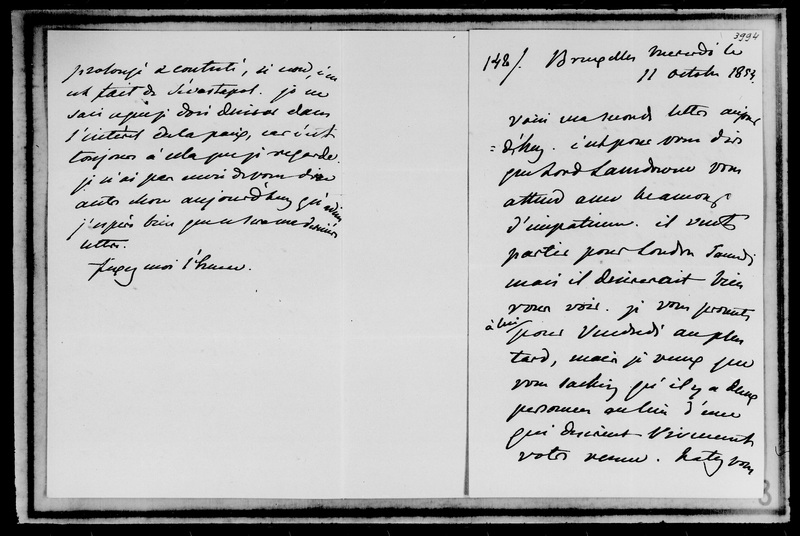 prolongé & contesté, si non c'en
est fait de Sévastopol. je ne
sais ce que je dois désirer dans
l'intérêt de la paix, car c'est
toujours à cela que je regarde.
je n'ai pas envie de vous dire
autre chose aujourd'huy qu'adieu
j'espère bien que ce sera ma dernière
lettre.
moi l'heure.
3994
148/. Bruxelles Mercredi le
11 octobre 1854.
Voici ma seconde lettre aujour
=d'huy. c'est pour vous dire
que Lord Lansdowne vous
attend avec beaucoup
d'impatience. il veut
partir pour London Samedi
mais il désirerait bien
vous voir. je vous promets
à lui pour Vendredi au plus
tard, mais je veux que
vous sachiez qu'il y a deux
personnes au lieu d'une
qui désirent vivement
votre venue. hatez vous
3